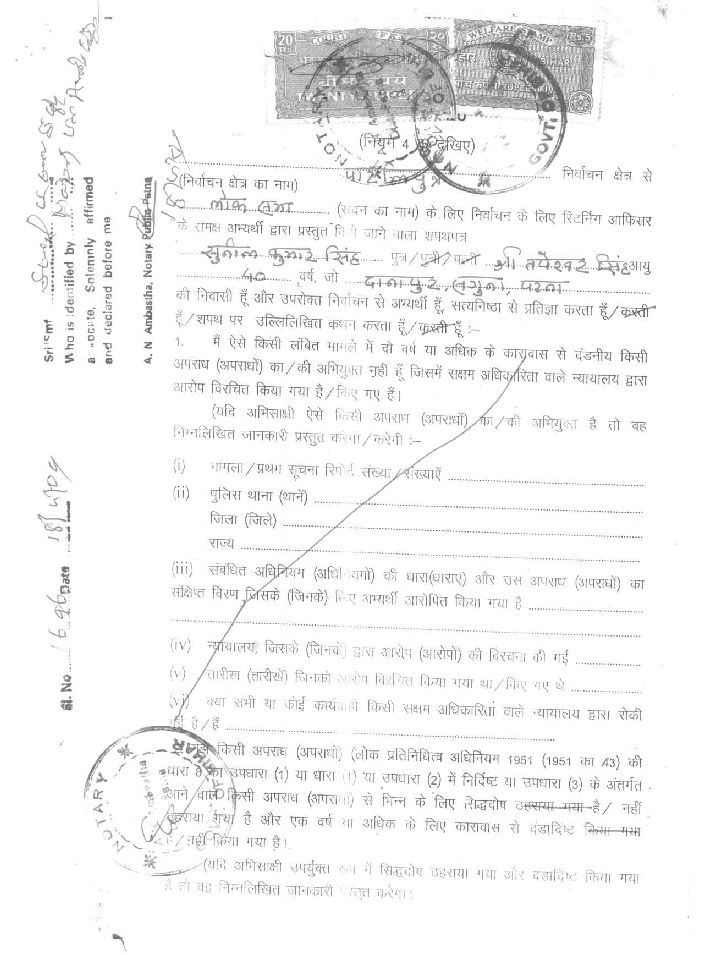 20 Rs.
20
WELFARE STAMP
Rs.5
BIHAR
NOTARY
GOVT. OF
(नियम 4 क देखिए)
पाटलिपुत्र निर्वाचन क्षेत्र से
(निर्वाचन क्षेत्र का नाम)
लोक सभा (सदन का नाम) के लिए निर्वाचन के लिए रिटर्निंग आफिसर
के समक्ष अभ्यर्थी द्वारा प्रस्तुत किये जाने वाला शपथपत्र
सुनील कुमार सिंह पुत्र/पुत्री/पत्नी श्री तपेश्वर सिंह आयु
40 वर्ष, जो दानापुर, लगुना, पटना
की निवासी हूँ और उपरोक्त निर्वाचन से अभ्यर्थी हूँ, सत्यनिष्ठा से प्रतिज्ञा करता हूँ/करती
हूँ/शपथ पर उल्लिलिखित कथन करता हूँ/करती हूँ :–
1. मैं ऐसे किसी लंबित मामले में दो वर्ष या अधिक के कारावास से दंडनीय किसी
अपराध (अपराधों) का/की अभियुक्त नहीं हूँ जिसमें सक्षम अधिकारिता वाले न्यायालय द्वारा
आरोप विरचित किया गया है/किए गए हैं।
(यदि अभिसाक्षी ऐसे किसी अपराध (अपराधों) का/की अभियुक्त है तो वह
निम्नलिखित जानकारी प्रस्तुत करेगा/करेगी :–
(i) मामला/प्रथम सूचना रिपोर्ट संख्या/संख्याएँ
(ii) पुलिस थाना (थानें)
जिला (जिले)
राज्य
(iii) संबंधित अधिनियम (अधिनियमों) की धारा(धाराए) और उस अपराध (अपराधों) का
संक्षिप्त विरण जिसके (जिनके) लिए अभ्यर्थी आरोपित किया गया है
(iv) न्यायालय, जिसके (जिनके) द्वारा आरोप (आरोपों) की विरचना की गई
(v) तारीख (तारीखें) जिनको आरोप विरचित किया गया था/किए गए थे
(vi) क्या सभी या कोई कार्यवाही किसी सक्षम अधिकारिता वाले न्यायालय द्वारा रोकी
गई है/हैं
किसी अपराध (अपराधों) (लोक प्रतिनिधित्व अधिनियम 1951 (1951 का 43) की
धारा 8 की उपधारा (1) या धारा (1) या उपधारा (2) में निर्दिष्ट या उपधारा (3) के अंतर्गत
आने वाले किसी अपराध (अपराधों) से भिन्न के लिए सिद्धदोष ठहराया गया है/ नहीं
ठहराया गया है और एक वर्ष या अधिक के लिए कारावास से दंडादिष्ट किया गया
है/नहीं किया गया है।
(यदि अभिसाक्षी उपर्युक्त रूप में सिद्धदोष ठहराया गया और दंडादिष्ट किया गया
है तो वह निम्नलिखित जानकारी प्रस्तुत करेगा।
NOTARY
BIHAR
Sri/Smt
Who is identified by
a vocate, Solemnly affirmed
and declared before me
A. N Ambastha, Notary Public Patna
Sl. No 16.96 Date 18/4/09